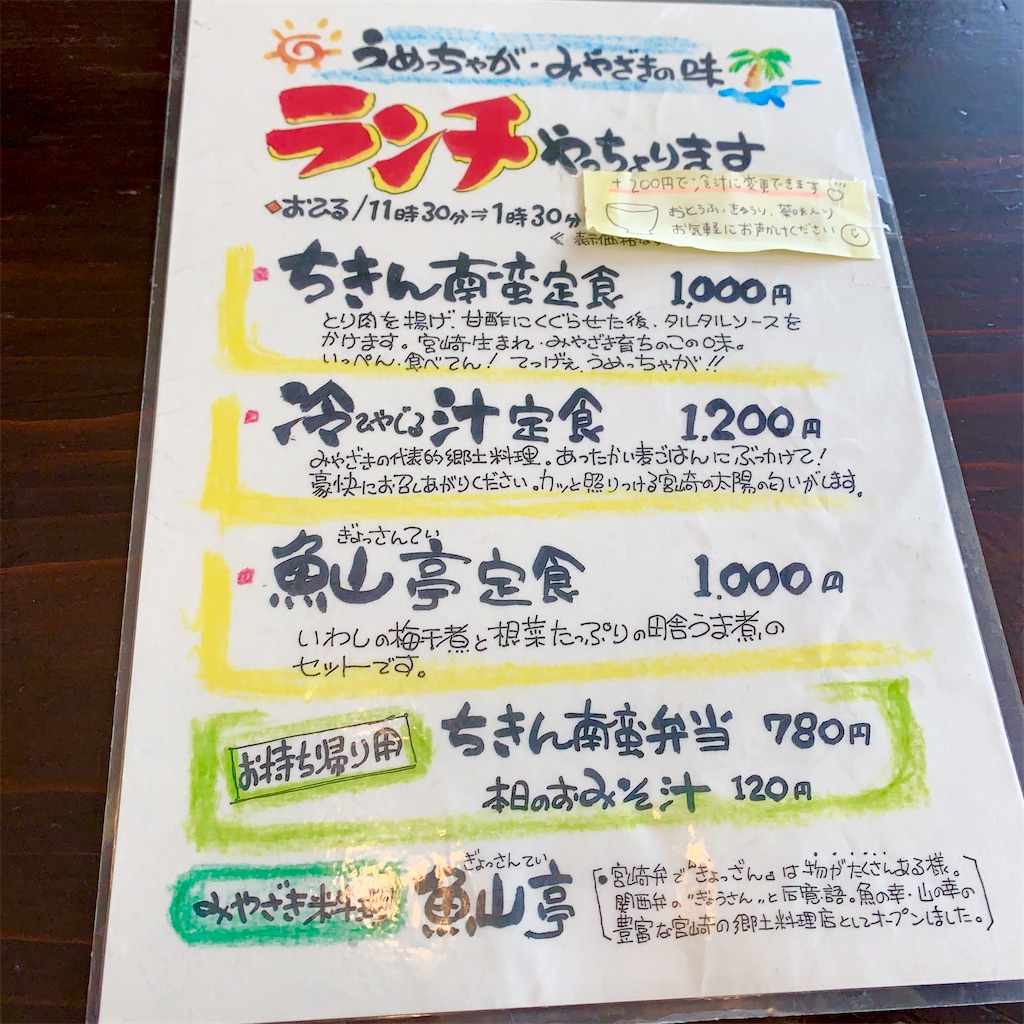 うめっちゃが・みやざきの味
ランチやっちょります
+200円で冷汁に変更できます
おとうふ、きゅうり、薬味入り
お気軽にお声かけください
おひる/11時30分⇒1時30分
《表示価格は
ちきん南蛮定食 1,000円
とり肉を揚げ、甘酢にくぐらせた後、タルタルソースを
かけます。宮崎生まれ・みやざき育ちのこの味。
いっぺん、食べてん! てっげぇ、うめっちゃが!!
冷ひやじる汁定食 1,200円
みやざきの代表的郷土料理。あったかい麦ごはんにぶっかけて!
豪快にお召しあがりください。カッと照りつける宮崎の太陽の匂いがします。
ぎょっさんてい
魚山亭定食 1,000円
いわしの梅干煮と根菜たっぷりの田舎うま煮の
セットです。
お持ち帰り用
ちきん南蛮弁当 780円
本日のおみそ汁 120円
みやざき料理
ぎょっさんてい
魚山亭
宮崎弁で"ぎょっさん"は物がたくさんある様。
関西弁の"ぎょうさん"と同意語。魚の幸・山の幸の
豊富な宮崎の郷土料理店としてオープンしました。